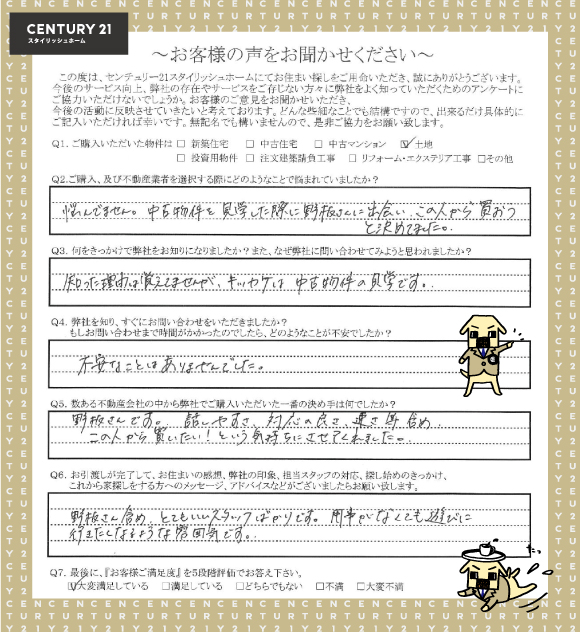 CENTURY 21
スタイリッシュホーム
～お客様の声をお聞かせください～
この度は、センチュリー21スタイリッシュホームにてお住まい探しをご用命いただき、誠にありがとうございます。
今後のサービス向上、弊社の存在やサービスをご存じない方々に弊社をよく知っていただくためのアンケートに
ご協力いただけないでしょうか。お客様のご意見をお聞かせいただき、
今後の活動に反映させていきたいと考えております。どんな些細なことでも結構ですので、出来るだけ具体的に
ご記入いただければ幸いです。無記名でも構いませんので、是非ご協力をお願い致します。
Q1. ご購入いただいた物件は □ 新築住宅 □ 中古住宅 □ 中古マンション ☑ 土地
□ 投資用物件 □ 注文建築請負工事 □ リフォーム・エクステリア工事 □その他
Q2.ご購入、及び不動産業者を選択する際にどのようなことで悩まれていましたか？
悩んでません。中古物件を見学した際に野板さんに出会い、この人から買おう
と決めてました。
Q3. 何をきっかけで弊社をお知りになりましたか？また、なぜ弊社に問い合わせてみようと思われましたか？
知った理由は覚えてませんが、キッカケは中古物件の見学です。
Q4. 弊社を知り、すぐにお問い合わせをいただきましたか？
もしお問い合わせまで時間がかかったのでしたら、どのようなことが不安でしたか？
不安なことはありませんでした。
Q5. 数ある不動産会社の中から弊社でご購入いただいた一番の決め手は何でしたか？
野板さんです。話しやすさ、対応の良さ、速さ等含め、
この人から買いたい！という気持ちにさせてくれました。
Q6. お引渡しが完了して、お住まいの感想、弊社の印象、担当スタッフの対応、探し始めのきっかけ、
これから家探しをする方へのメッセージ、アドバイスなどがございましたらお願い致します。
野板さん含め、とてもいいスタッフばかりです。用事がなくても遊びに
行きたくなるような雰囲気です。
Q7. 最後に、『お客様ご満足度』を5段階評価でお答え下さい。
☑大変満足している □満足している □どちらでもない □不満 □大変不満